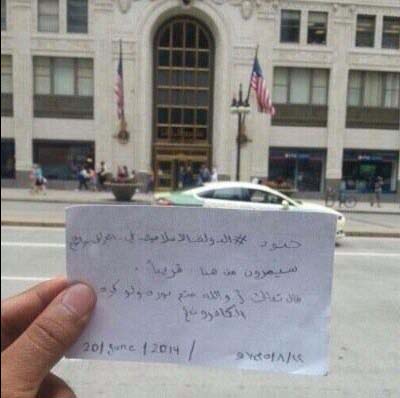 جنود #الدولة_الاسلامية_في_العراق_والشام
سيمرون من هنا قريباً .
قال تعالى { والله متم نوره ولو كره
الكافرون }
20/June/2014/